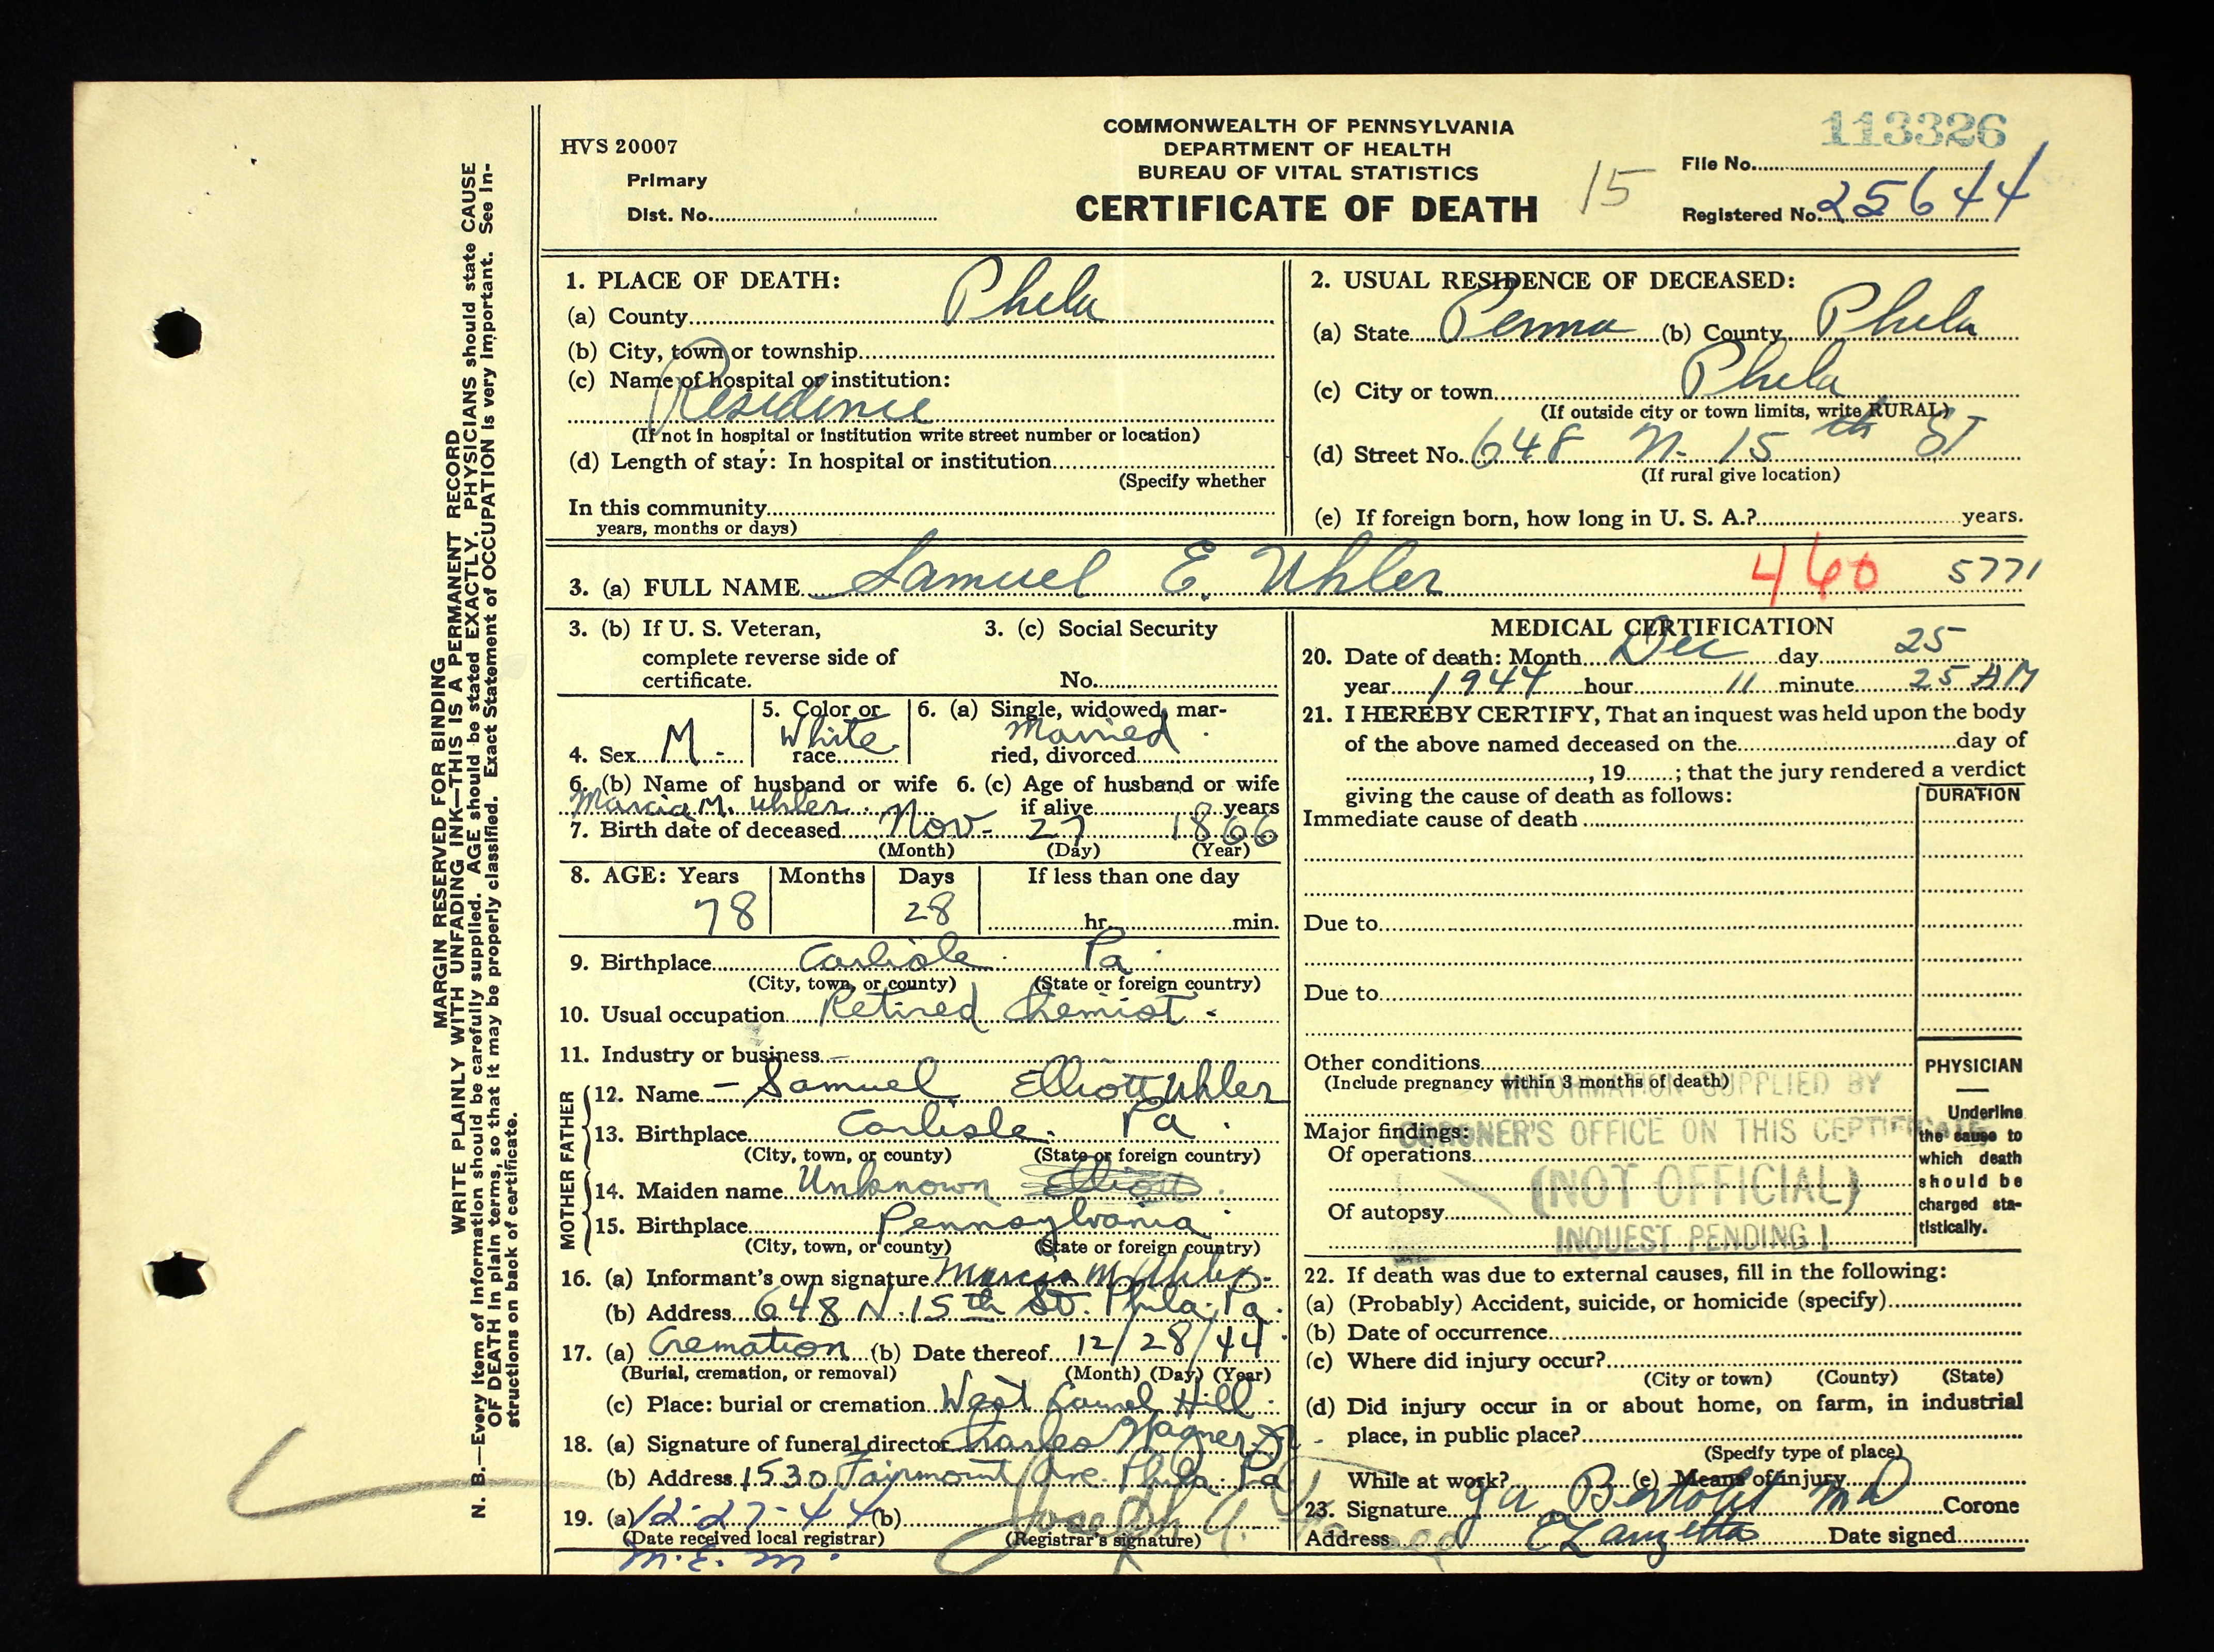 113326
HVS 20007
COMMONWEALTH OF PENNSYLVANIA
DEPARTMENT OF HEALTH
BUREAU OF VITAL STATISTICS
CERTIFICATE OF DEATH
15
Primary
Dist. No.
File No.
Registered No. 25644
MARGIN RESERVED FOR BINDING
WRITE PLAINLY WITH UNFADING INK—THIS IS A PERMANENT RECORD
N. B.—Every item of information should be carefully supplied. AGE should be stated EXACTLY. PHYSICIANS should state CAUSE
OF DEATH in plain terms, so that it may be properly classified. Exact Statement of OCCUPATION is very important. See In-
structions on back of certificate.
1. PLACE OF DEATH:
(a) County Phila
(b) City, town or township
(c) Name of hospital or institution:
Residence
(If not in hospital or institution write street number or location)
(d) Length of stay: In hospital or institution
(Specify whether
In this community
years, months or days)
2. USUAL RESIDENCE OF DECEASED:
(a) State Penna (b) County Phila
(c) City or town Phila
(If outside city or town limits, write RURAL)
(d) Street No. 648 N. 15th ST
(If rural give location)
(e) If foreign born, how long in U. S. A.? years.
3. (a) FULL NAME Samuel E. Uhler 460 5771
3. (b) If U. S. Veteran,
complete reverse side of
certificate.
3. (c) Social Security
No.
4. Sex M-
5. Color or
White
race
6. (a) Single, widowed, mar-
Married
ried, divorced
6. (b) Name of husband or wife 6. (c) Age of husband or wife
Marcia M. Uhler if alive years
7. Birth date of deceased Nov- 27 1866
(Month) (Day) (Year)
8. AGE: Years Months Days If less than one day
78 28 hr. min.
9. Birthplace Carlisle Pa
(City, town, or county) (State or foreign country)
10. Usual occupation Retired Chemist-
11. Industry or business —
FATHER
12. Name - Samuel Elliott Uhler
13. Birthplace Carlisle. Pa.
(City, town, or county) (State or foreign country)
MOTHER
14. Maiden name Unknown Elliott
15. Birthplace Pennsylvania
(City, town, or county) (State or foreign country)
16. (a) Informant's own signature Marcia M Uhler
(b) Address 648 N. 15th St. Phila. Pa.
17. (a) Cremation (b) Date thereof 12/28/44
(Burial, cremation, or removal) (Month) (Day) (Year)
(c) Place: burial or cremation West Laurel Hill
18. (a) Signature of funeral director Charles Wagner Jr
(b) Address 1530 Fairmount Ave. Phila. Pa
19. (a) 12-27-44 (b) Joseph A.
(Date received local registrar) (Registrar's signature)
M. E. M.
MEDICAL CERTIFICATION
20. Date of death: Month Dec day 25
year 1944 hour 11 minute 25 AM
21. I HEREBY CERTIFY, That an inquest was held upon the body
of the above named deceased on the day of
, 19 ; that the jury rendered a verdict
giving the cause of death as follows:
DURATION
Immediate cause of death
Due to
Due to
Other conditions
(Include pregnancy within 3 months of death)
Major findings:
Of operations
Of autopsy
PHYSICIAN
Underline
the cause to
which death
should be
charged sta-
tistically.
INFORMATION SUPPLIED BY
CORONER'S OFFICE ON THIS CERTIFICATE
(NOT OFFICIAL)
INQUEST PENDING !
22. If death was due to external causes, fill in the following:
(a) (Probably) Accident, suicide, or homicide (specify)
(b) Date of occurrence
(c) Where did injury occur?
(City or town) (County) (State)
(d) Did injury occur in or about home, on farm, in industrial
place, in public place?
(Specify type of place)
While at work? (e) Means of injury
23. Signature MD Corone
Address Date signed